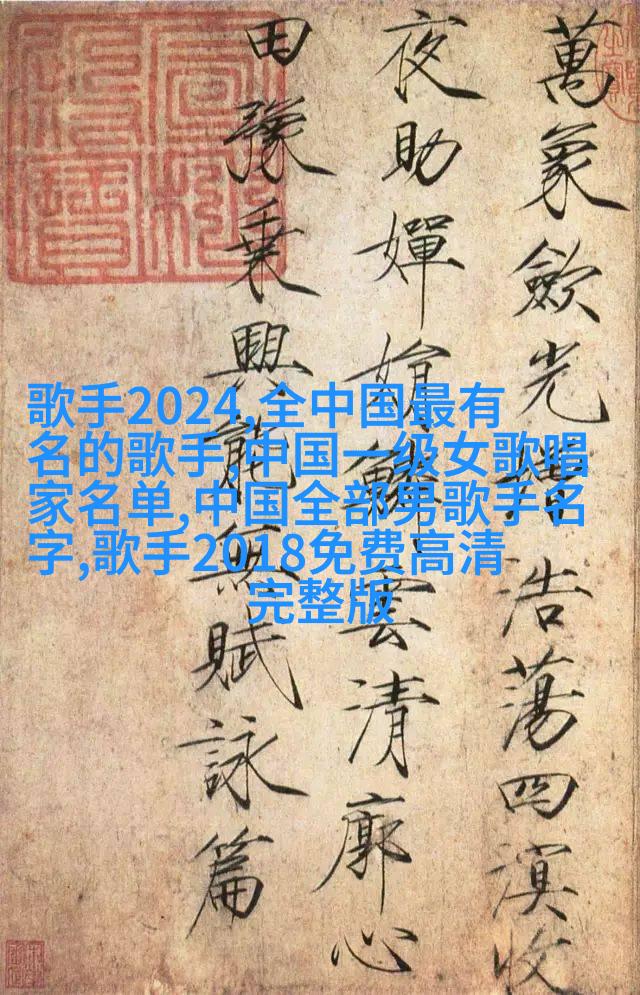 萬象歛光增浩蕩四溟收
夜助嬋娟鱗雲清廓心
田豫乘興能無賦詠篇
歌手2024,全中国最有
名的歌手,中国一级女歌唱
家名单,中国全部男歌手名
字,歌手2018免费高清
完整版